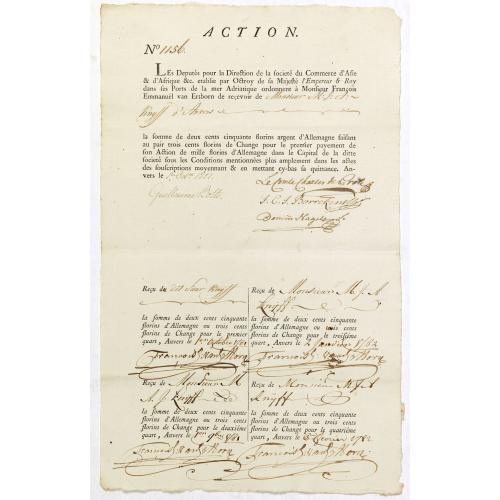 ACTION.
N° 1156.
LEs Deputés pour la Direction de la societé du Commerce d'Asie
& d'Afrique &c. etablie par Octroy de sa Majesté l'Empereur & Roy
dans ses Ports de la mer Adriatique ordonnent à Monsieur François
Emmanuël van Ertborn de reçevoir de Monsieur M.
Knyff d'Anvers
la somme de deux cents cinquante florins argent d'Allemagne faisant
au pair trois cents florins de Change pour le premier payement de
son Action de mille florins d'Allemagne dans le Capital de la ditte
societé sous les Conditions mentionnées plus amplement dans les actes
des souscriptions moyennant & en mettant cy-bas sa quittance. An-
vers le 1781
Guillaume Bolts.
Le Comte Charles de Proli
J. C. J. Borrekens
Domin
Reçu du dit Sieur Knyff
la somme de deux cents cinquante
florins d'Allemagne ou trois cents
florins de Change pour le premier
quart, Anvers le 1er Octobre 1781
François Ertborn
Reçu de Monsieur M. J. A
Knyff
la somme de deux cents cinquante
florins d'Allemagne ou trois cents
florins de Change pour le troisième
quart, Anvers le 2 Janvier 1782
François Ertborn
Reçu de Monsieur M
A. J. Knyff
la somme de deux cents cinquante
florins d'Allemagne ou trois cents
florins de Change pour le deuxième
quart, Anvers le 1er 1781
François Ertborn
Reçu de Monsieur M. J. A
Knyff
la somme de deux cents cinquante
florins d'Allemagne ou trois cents
florins de Change pour le quatrième
quart, Anvers le fevrier 1782
François Ertborn